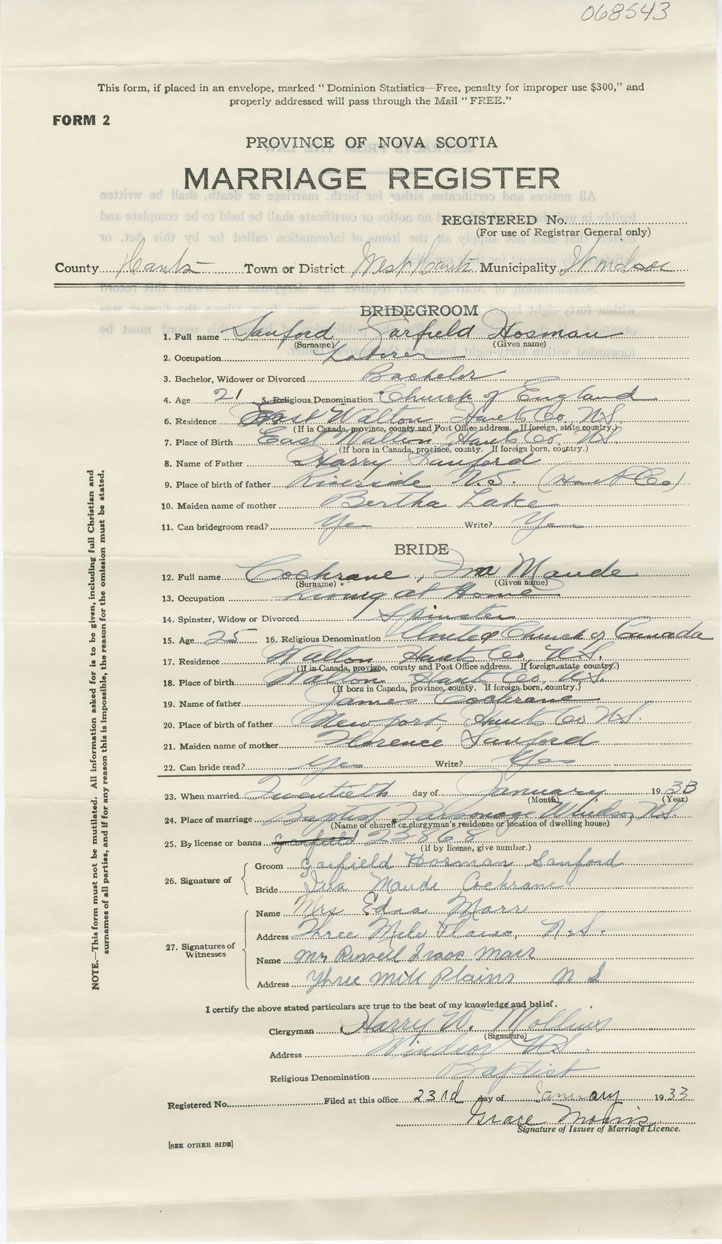 068543
This form, if placed in an envelope, marked "Dominion Statistics—Free, penalty for improper use $300," and
properly addressed will pass through the Mail "FREE."
FORM 2
PROVINCE OF NOVA SCOTIA
MARRIAGE REGISTER
REGISTERED No.
(For use of Registrar General only)
County Hants Town or District West Hants Municipality Windsor
BRIDEGROOM
1. Full name Sanford Garfield Hosman
(Surname) (Given name)
2. Occupation Laborer
3. Bachelor, Widower or Divorced Bachelor
4. Age 21 5. Religious Denomination Church of England
6. Residence East Walton Hants Co. N.S.
(If in Canada, province, county and Post Office address. If foreign, state country.)
7. Place of Birth East Walton Hants Co. N.S.
(If born in Canada, province, county. If foreign born, country.)
8. Name of Father Harry Sanford
9. Place of birth of father Riverside N.S. (Hants Co)
10. Maiden name of mother Bertha Lake
11. Can bridegroom read? Yes Write? Yes
BRIDE
12. Full name Cochrane, Maude
(Surname) (Given name)
13. Occupation Living at Home
14. Spinster, Widow or Divorced Spinster
15. Age 25 16. Religious Denomination United Church of Canada
17. Residence Walton Hants Co. N.S.
(If in Canada, province, county and Post Office address. If foreign, state country.)
18. Place of birth Walton Hants Co. N.S.
(If born in Canada, province, county. If foreign born, country.)
19. Name of father James Cochrane
20. Place of birth of father Newport, Hants Co N.S.
21. Maiden name of mother Florence Sanford
22. Can bride read? Yes Write? Yes
23. When married Twentieth day of January 1933
(Month) (Year)
24. Place of marriage Baptist Parsonage Windsor, N.S.
(Name of church or clergyman's residence or location of dwelling house)
25. By license or banns 23868
(if by license, give number.)
26. Signature of
Groom Garfield Hosman Sanford
Bride Iva Maude Cochrane
27. Signatures of Witnesses
Name Mrs Edna Marr
Address Three Mile Plains, N.S.
Name Mr Russell Isaac Marr
Address Three mile Plains N S
I certify the above stated particulars are true to the best of my knowledge and belief.
Clergyman Harry W. Mollins
(Signature)
Address Windsor N.S.
Religious Denomination Baptist
Registered No. Filed at this office 23rd day of January 1933
Grace Morris
Signature of Issuer of Marriage Licence.
[SEE OTHER SIDE]
NOTE.—This form must not be mutilated. All information asked for is to be given, including full Christian and
surnames of all parties, and if for any reason this is impossible, the reason for the omission must be stated.